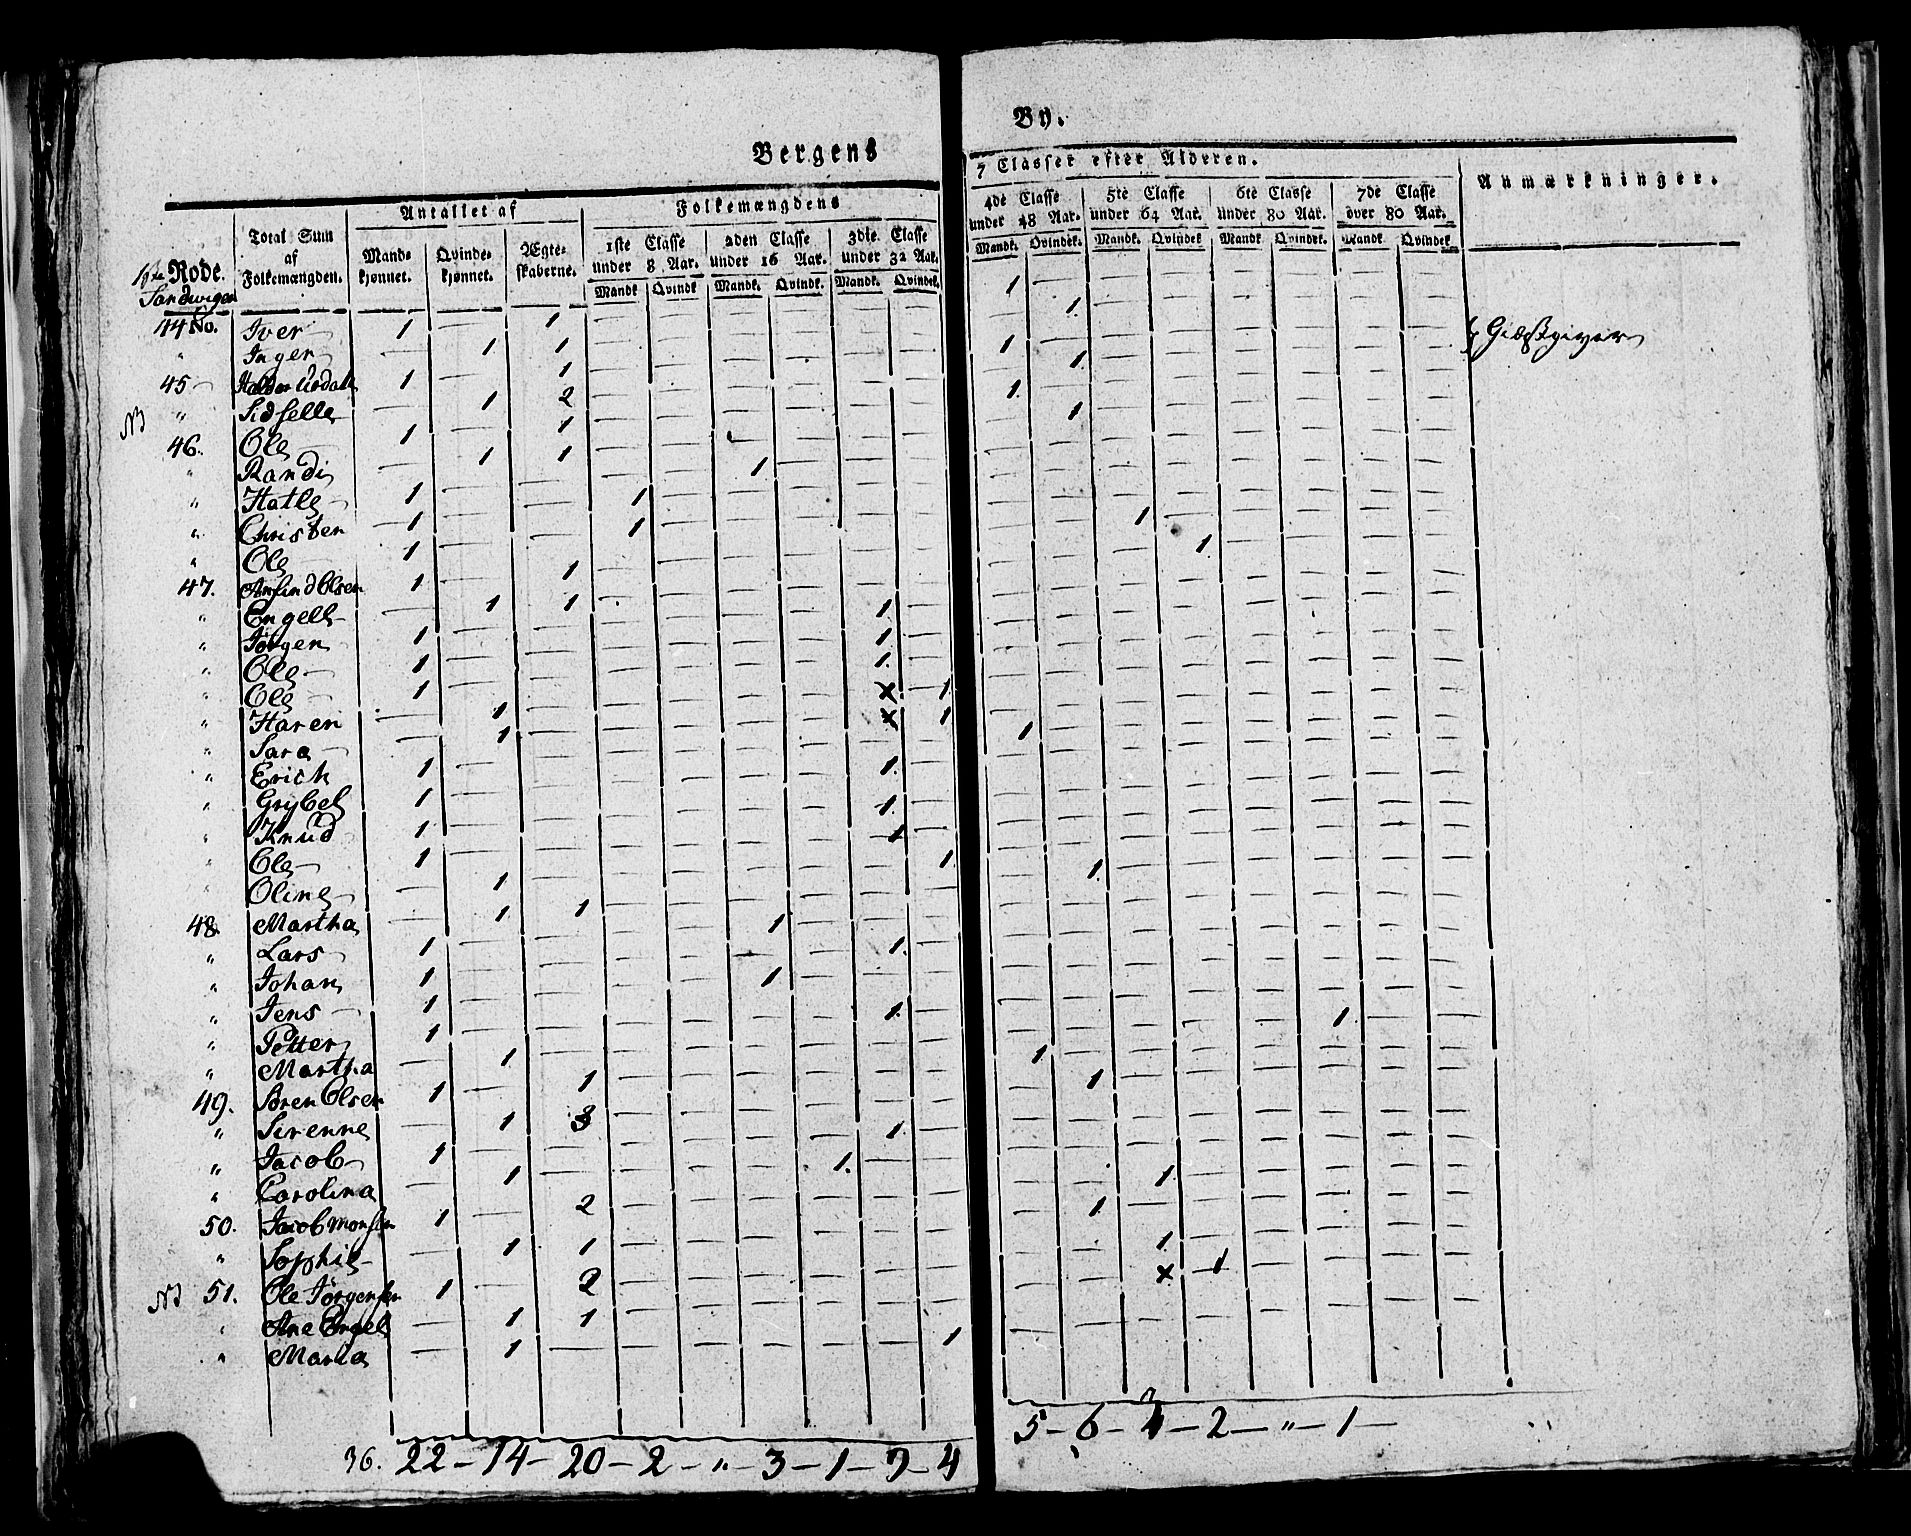 Bergens
By.
Antallet af
Folkemængdens
7 Classer efter Alderen.
Anmærkninger.
1ste Rode.
Sandwigen
Total Sum af Folkemængden.
Mandkjønnet.
Qvindekjønnet.
Ægteskaberne.
1ste Classe under 8 Aar.
2den Classe under 16 Aar.
3die Classe under 32 Aar.
4de Classe under 48 Aar.
5te Classe under 64 Aar.
6te Classe under 80 Aar.
7de Classe over 80 Aar.
Mandk. Qvindk. Mandk. Qvindk. Mandk. Qvindek. Mandk. Qvindek. Mandk. Qvindek. Mandk. Qvindek. Mandk. Qvindek.
44 No. Iver 1 — 1 1
" Inger — 1 1 1
45 — 1 — 1 1 Giæstgiver
NB " Sidselle — 1 2 1
46. Ole 1 — 1 1
" Randi — 1 1 1
" Hatle 1 — — 1
" Christen 1 — — 1
" Ole 1 — — 1
47. Amund Olsen 1 — 1 1
" Engell — 1 1 1
" Jörgen 1 — — 1
" Ole 1 — — 1
" Ole 1 — — 1
" Karen — 1 — x 1
" Sara — 1 — x 1
" Erich 1 — — 1
" Grybel 1 — — 1
" Knud 1 — — 1
" Ole 1 — — 1
" Oline — 1 — 1
48. Martha — 1 1 1
" Lars 1 — — 1
" Johan 1 — — 1
" Jens 1 — — 1
" Petter 1 — — 1
" Martha — 1 — 1
49. Sören Olsen 1 — 1 1
" Sirenne — 1 3 1
" Jacob 1 — — 1
" Carolina — 1 — 1
50. Jacob Monsen 1 — 2 1
" Sophie — 1 1 1
NB 51. Ole Jörgensen 1 — 2 1
" Ane Engel — 1 1 x 1
" Maria — 1 — 1
36. 22 — 14 — 20 — 2 — " — 3 — 1 — 9 — 4
5 — 6 — 4 — 2 — " — 1 —